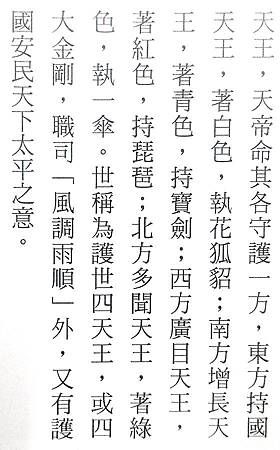 天王，天帝命其各守護一方，東方持國
天王，著白色，執花狐貂；南方增長天
王，著青色，持寶劍；西方廣目天王，
著紅色，持琵琶；北方多聞天王，著綠
色，執一傘。世稱為護世四天王，或四
大金剛，職司「風調雨順」外，又有護
國安民天下太平之意。